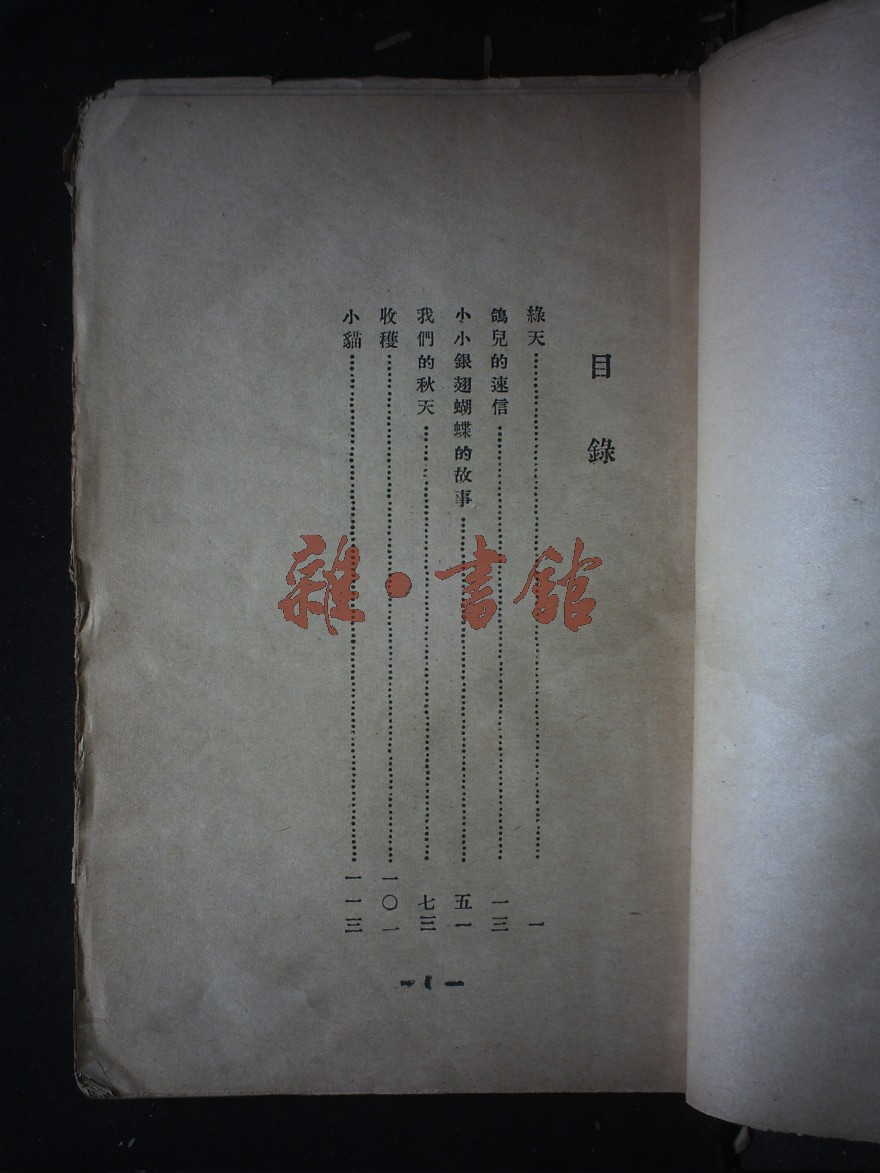 目錄
綠天……一
鴿兒的速信……一三
小小銀翅蝴蝶的故事……五一
我們的秋天……七三
收穫……一〇一
小貓……一一三
雜·書館